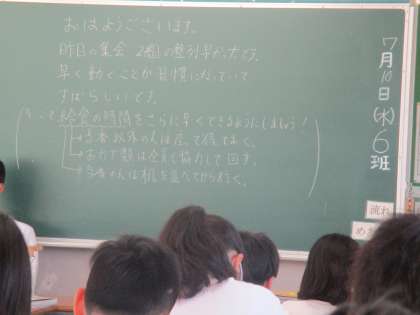 おはようございます。
昨日の集会 2組の整列早かったぞう。
早く動くことが習慣になっていて
すばらしいです。
給食の時間をさらに早くできるようにしましょう!
当番以外の人は座って待っておく。
おかず類は全員で協力して回す。
当番の人は机を並べてから行く。
7月10日(水)
6班
流れ